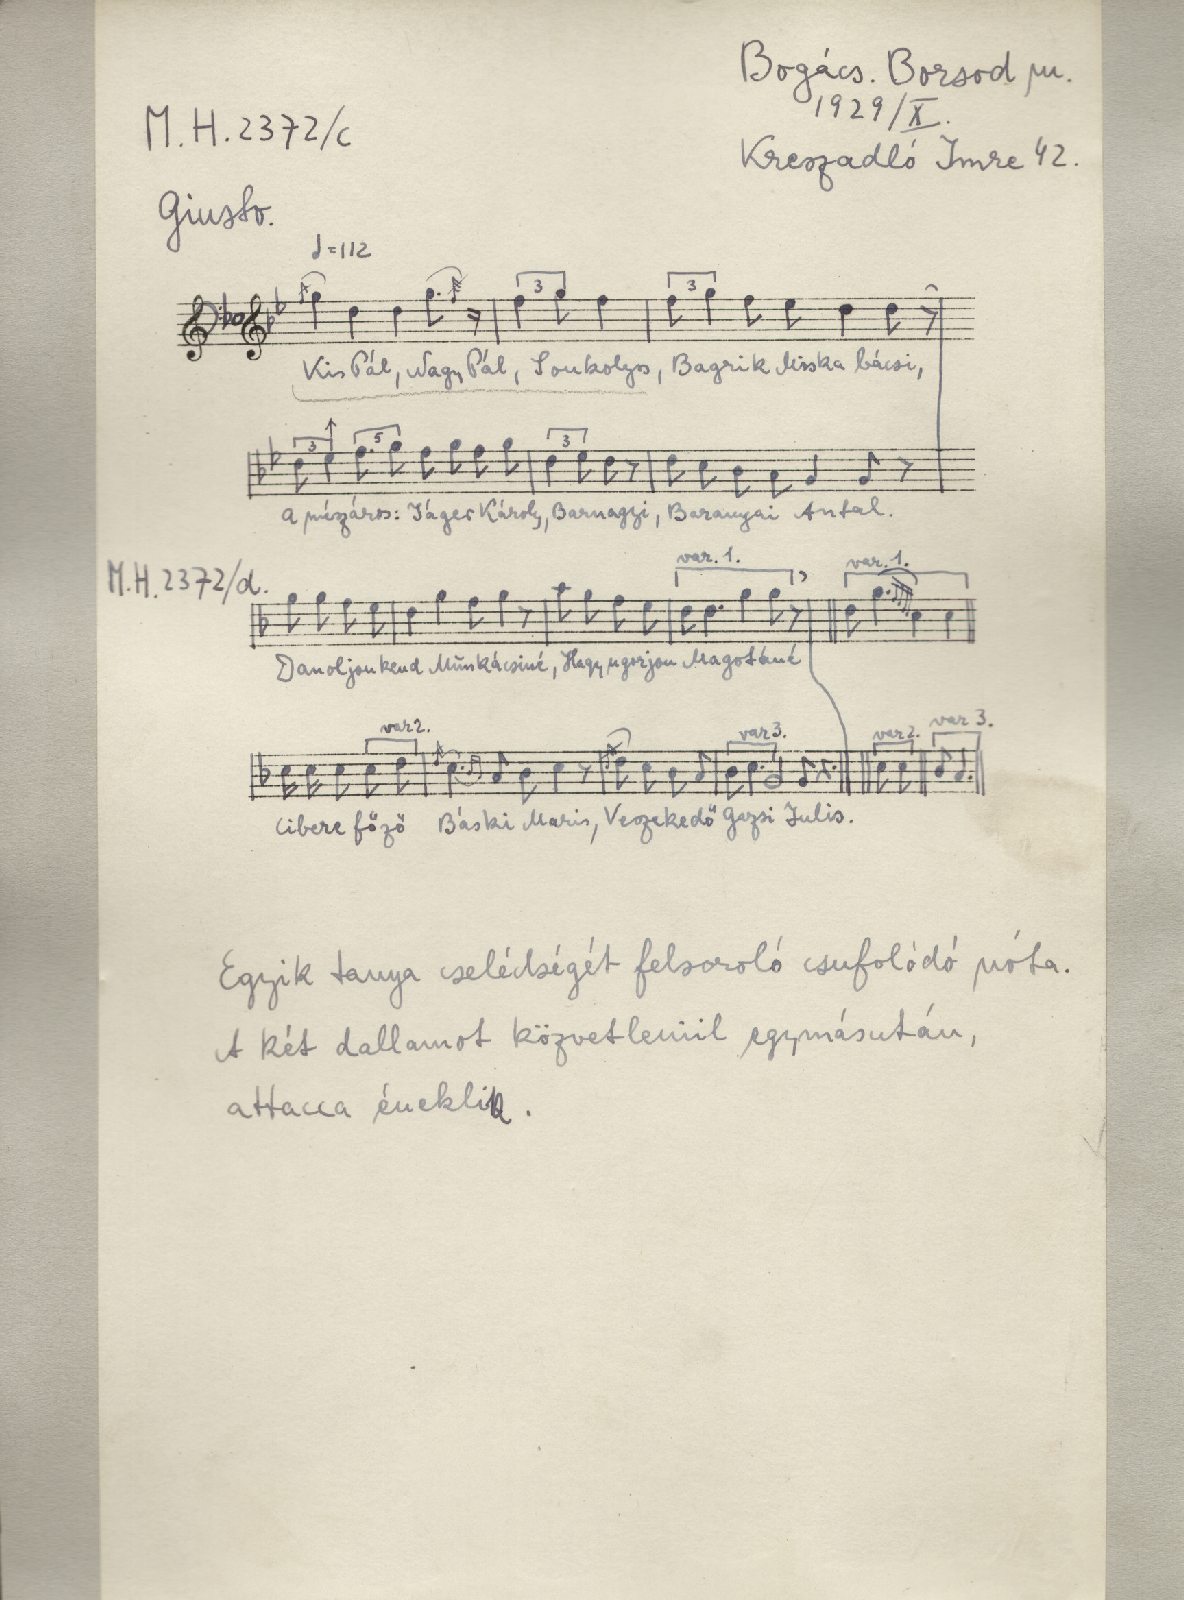 Bogács. Borsod m.
1929/X.
M.H. 2372/c
Kreszadló Imre 42.
Giusto.
♩=112
3 3
Kis Pál, Nagy Pál, Soukolyos, Bagrik Miska bácsi,
3 5 3
a mészáros: Jáger Károly, Barnagyi, Baranyai Antal.
var. 1. var. 1.
M.H. 2372/d.
Danoljonkend Munkácsiné, Hagy ugorjon Magotáné
var 2. var 3. var 2. var 3.
Cibere főző Báski Maris, Veszekedő Gazsi Julis.
Egyik tanya cselédségét felsoroló csufolódó nóta.
A két dallamot közvetlenül egymásután,
attacca éneklik.